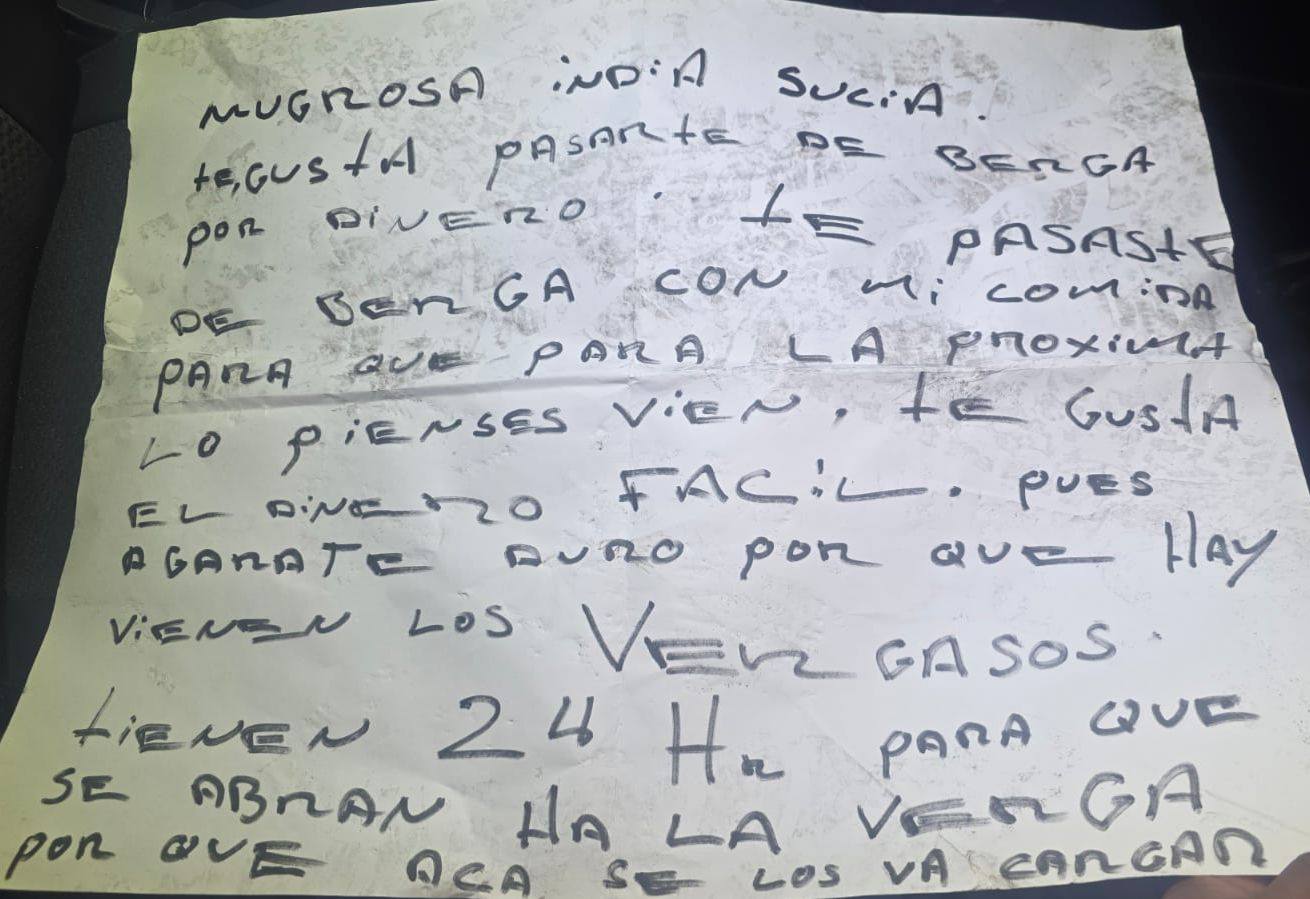 MUGROSA iNDiA SUCiA.
tE,GUStA PASARtE DE BERGA
POR DiNERO. tE PASAStE
DE BERGA CON Mi COMiDA
PARA QUE PARA LA PROXiMA
LO PiENSES ViEN. tE GUStA
EL DiNERO FACiL. PUES
AGARATE DURO POR QUE HAY
ViENEN LOS VERGASOS.
tiENEN 24 HR PARA QUE
SE ABRAN HA LA VERGA
POR QUE ACA SE LOS VA CARGAR